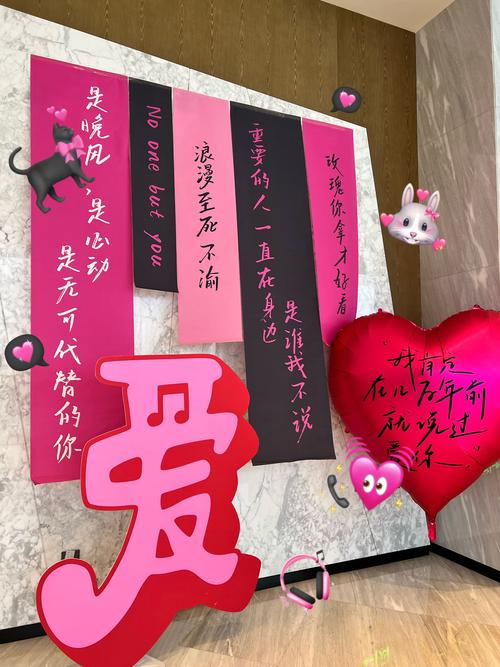 是晚风，是心动
是无可代替的你
No one but you
浪漫至死不渝
重要的人一直在身边
是谁我不说
玫瑰你拿才好看
爱
"我肯定
在几百年前
就说过
爱你"